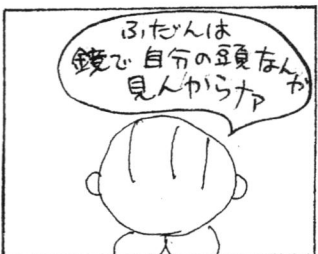 ふだんは
鏡で自分の頭なんか
見んからナァ